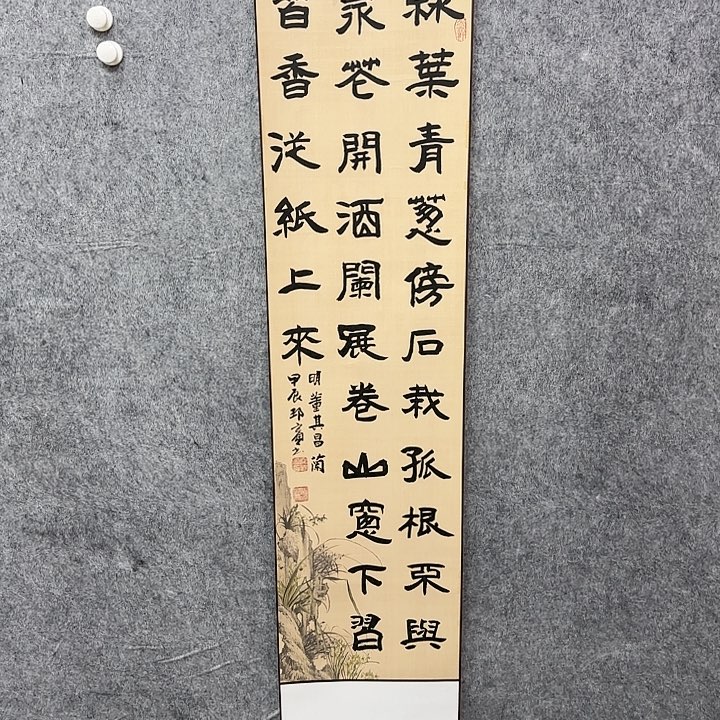 綠葉青蔥傍石栽孤根不與
眾花開酒闌展卷山窗下習
習香從紙上來
明董其昌蘭
甲辰